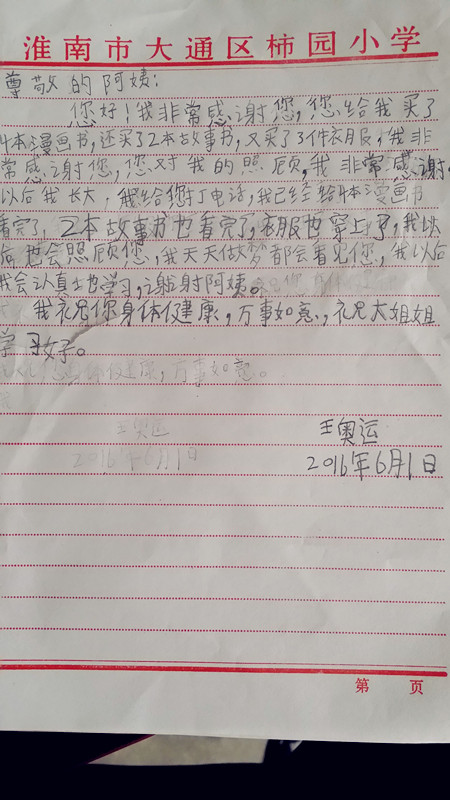 淮南市大通区柿园小学
尊敬的阿姨:
您好!我非常感谢您,您给我买了
4本漫画书,还买了2本故事书,又买了3件衣服,我非
常感谢您,您对我的照顾,我非常感谢。
以后我长大,我给您打电话,我已经给4本漫画书
看完了,2本故事书也看完了,衣服也穿上了,我以
后也会照顾您,我天天做梦都会看见您,我以后
我会认真土也学习,谢射阿姨。
我祝你身体健康,万事如意,祝大姐姐
学习女子。
万事如意。
王奥运
2016年6月1日
王奥运
2016年6月1日
第 页